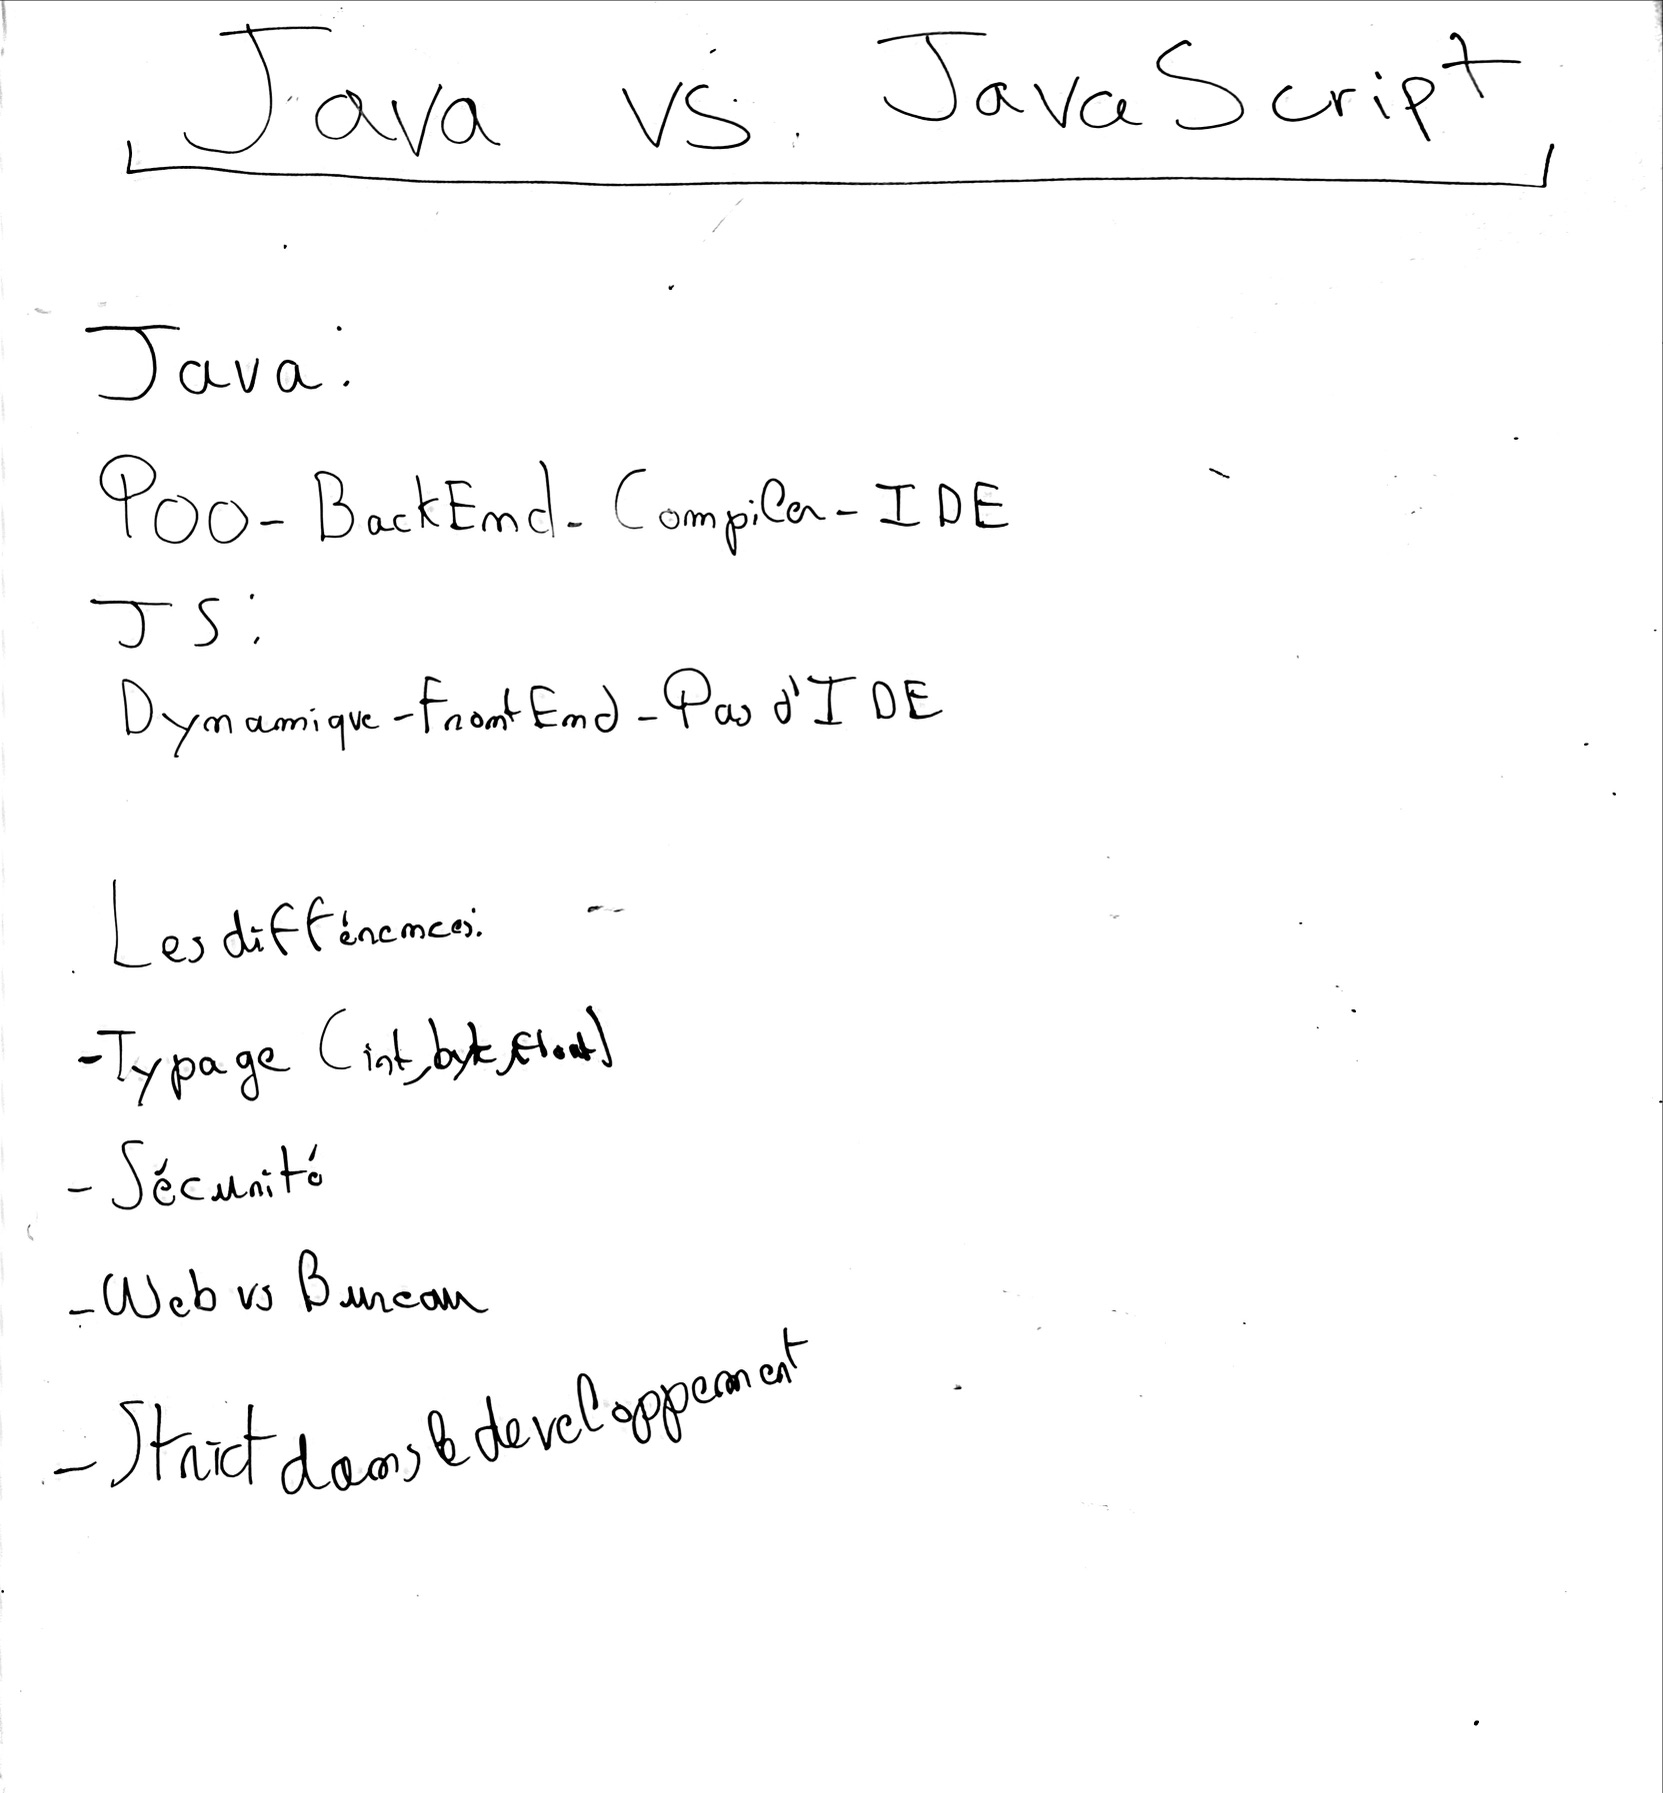 Java vs. JavaScript
Java:
POO - BackEnd - Compiler - IDE
JS:
Dynamique - FrontEnd - Pas d'IDE
Les différences:
- Typage (int, byte, float)
- Sécurité
- Web vs Bureau
- Strict dans le developpement